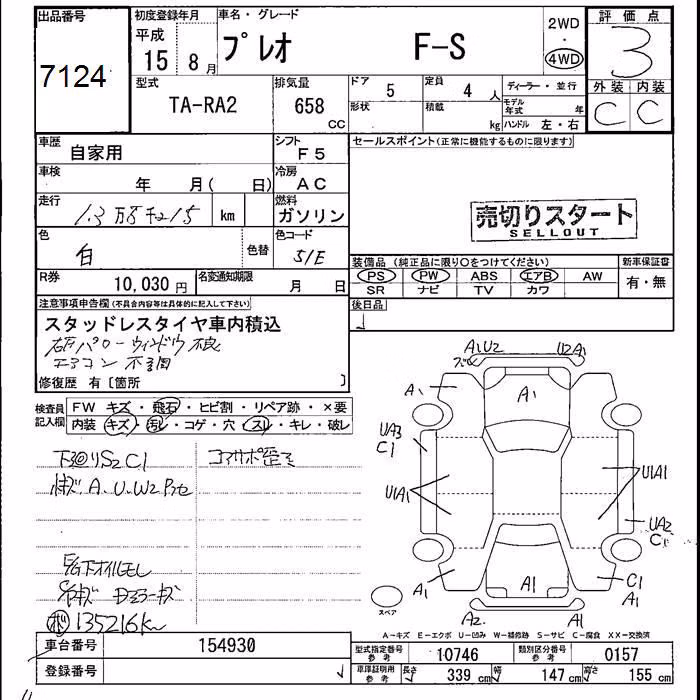 出品番号
7124
初度登録年月
平成
15 8 月
車名・グレード
プレオ F-S
2WD
・
4WD
評価点
3
外装 内装
C C
型式
TA-RA2
排気量
658
CC
ドア
5
定員
4 人
ディーラー・並行
形状
積載
kg
モデル年式 年
ハンドル 左・右
車歴
自家用
シフト
F5
車検
年 月( 日)
冷房
AC
走行
km
燃料
ガソリン
色
白
色替
色コード
51E
R券
10,030 円
名変通知期限
月 日
セールスポイント(正常に機能するものに限ります)
売切りスタート
SELLOUT
装備品(純正品に限り○をつけてください)
PS PW ABS エアB AW
SR ナビ TV カワ
新車保証書
有・無
後日品
注意事項申告欄(不具合内容等は具体的に記入して下さい)
スタッドレスタイヤ車内積込
右Fパワーウィンドウ不良
エアコン不調
修復歴 有〔箇所 〕
検査員
記入欄
FW キズ・飛石・ヒビ割・リペア跡・×要
内装・キズ・汚レ・コゲ・穴・スレ・キレ・破レ
下廻りS2C1
コアサポ歪ミ
A.U.W2
E/G下オイルモレ
135216km
A1U2
U2A1
A1
A1
UA3
C1
U1A1
U1A1
UA2
C1
A1
C1
A1
A1
A2
A1
スペア
A-キズ E-エクボ U-凹み W-補修跡 S-サビ C-腐食 XX-交換済
車台番号
154930
登録番号
型式指定番号
参考
10746
類別区分番号
参考
0157
車庫証明用
参考
長さ 339 cm 幅 147 cm 高さ 155 cm